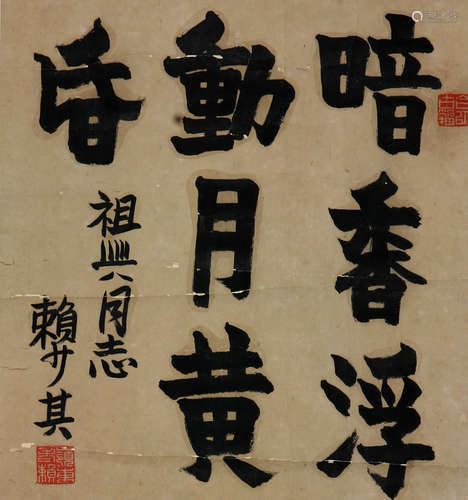 暗香浮
動月黄
昏
祖興同志
賴少其